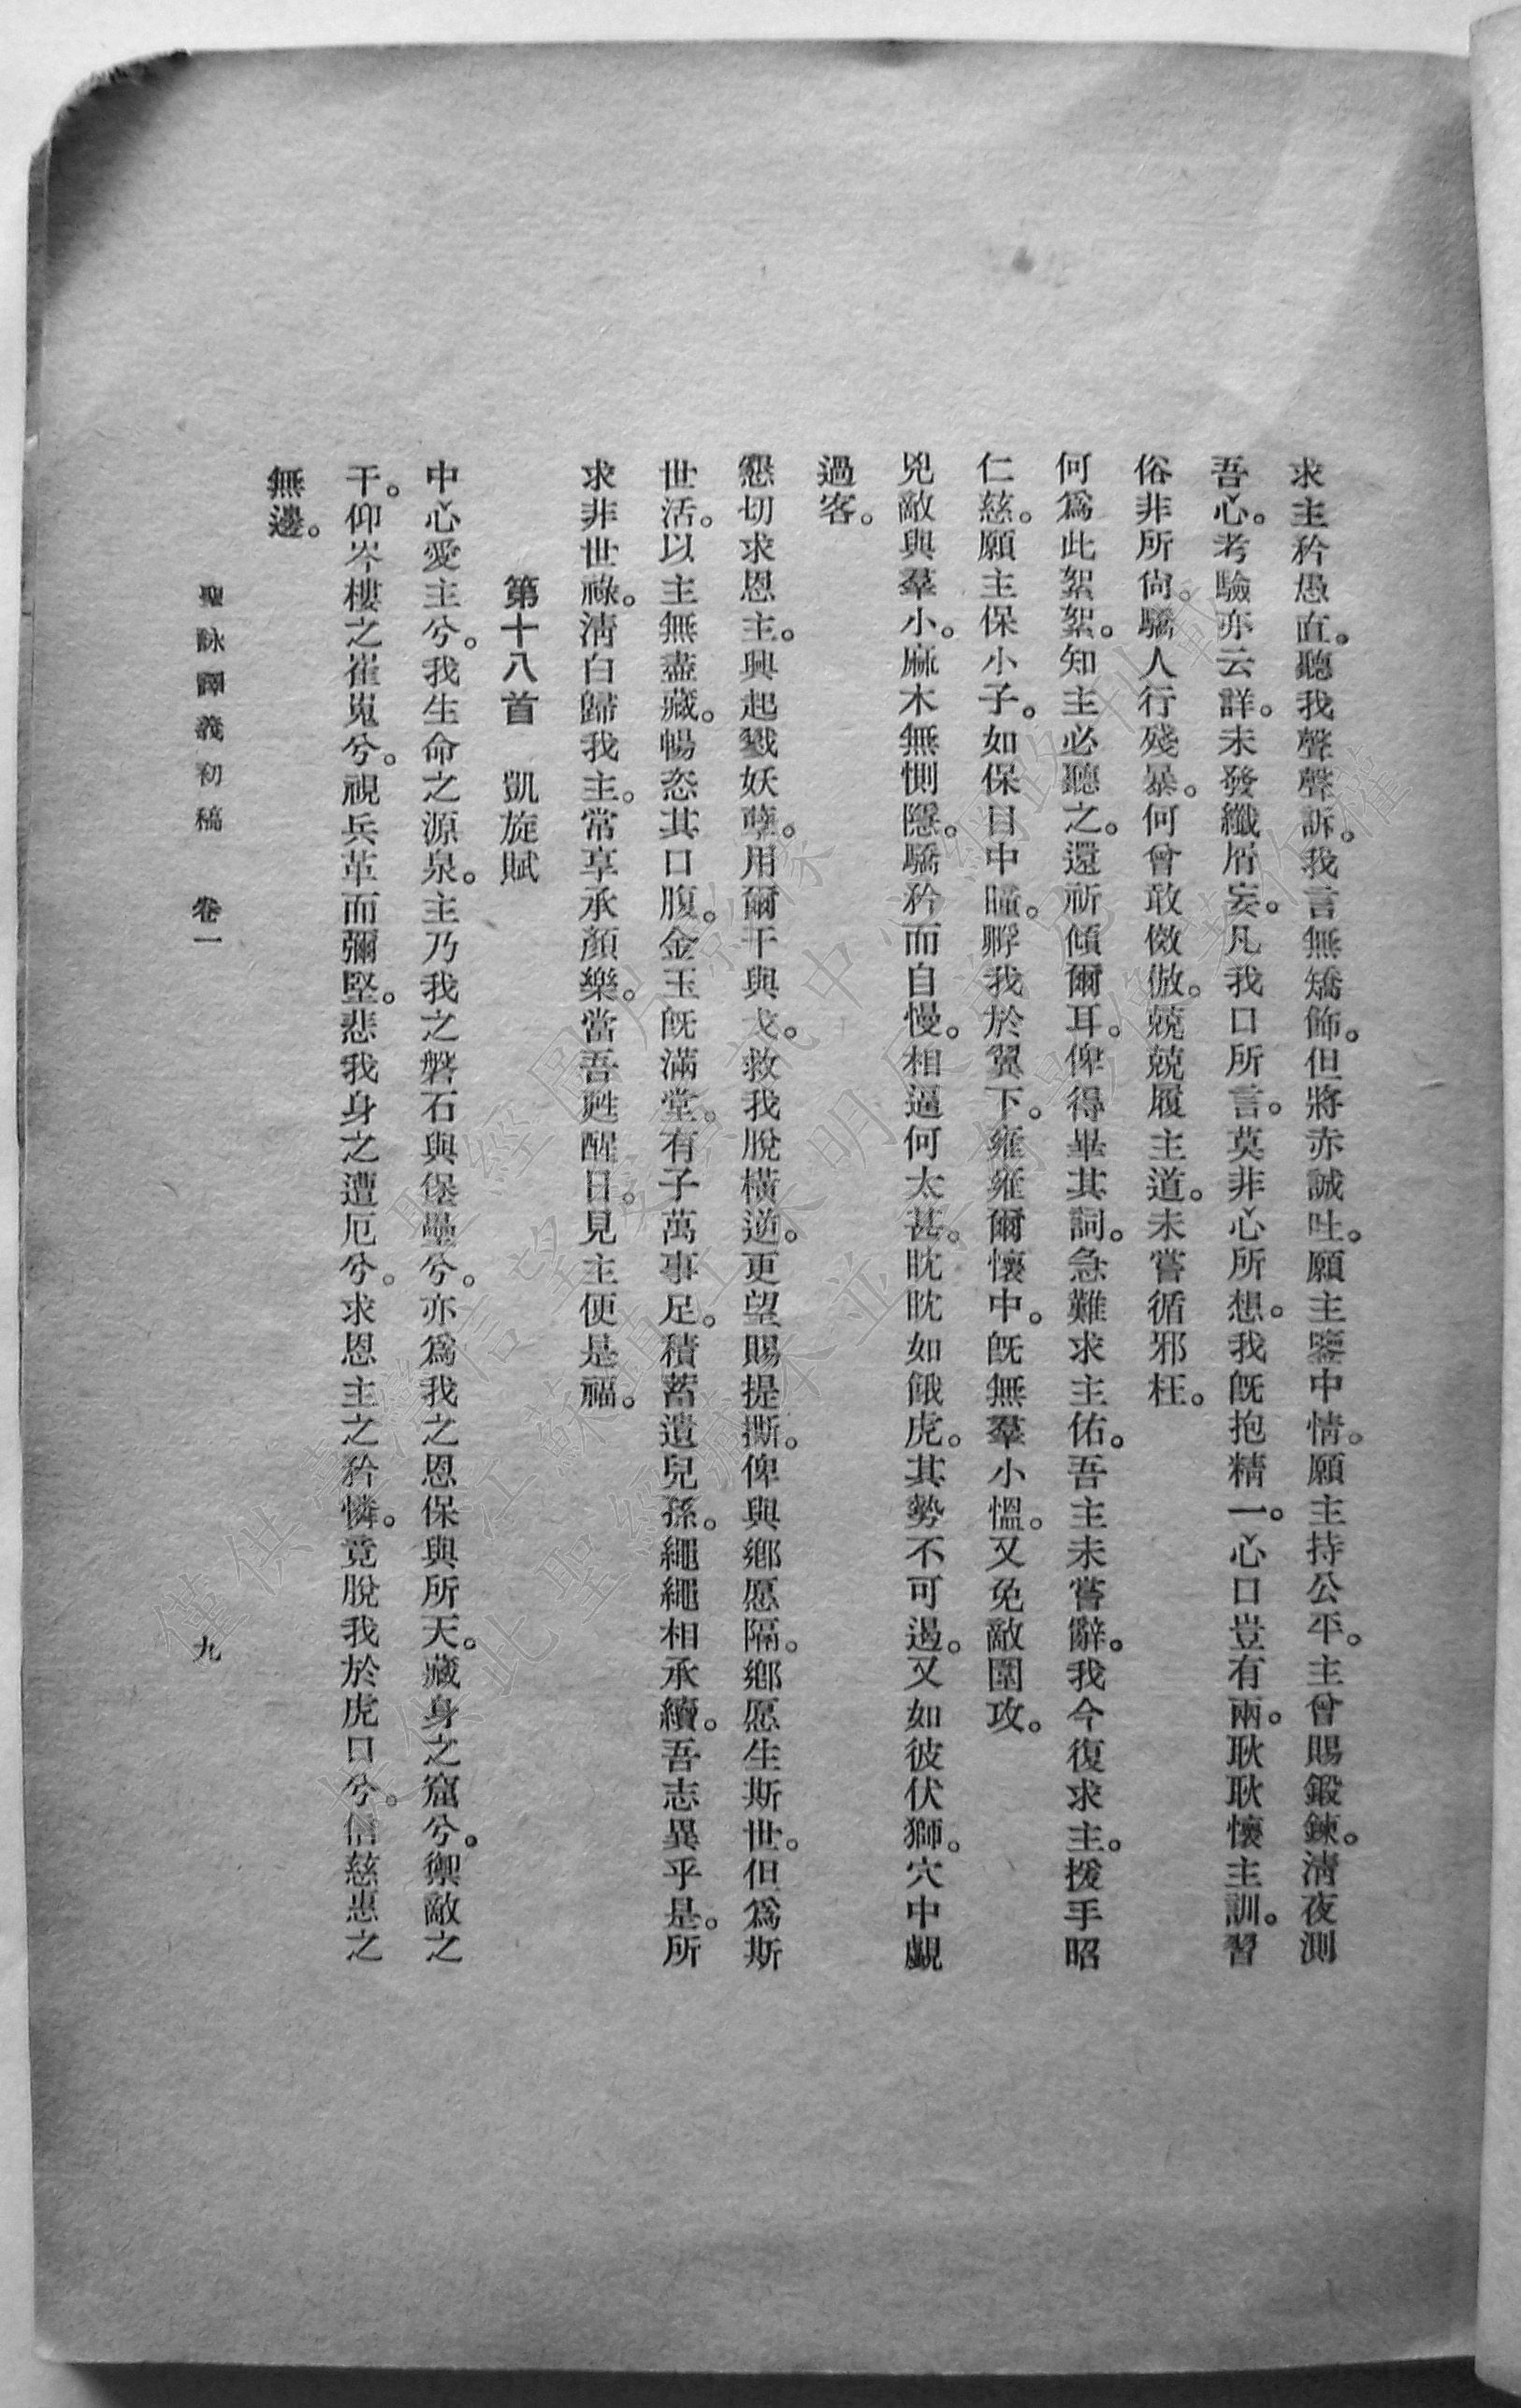 求主矜愚直。聽我聲聲訴。我言無矯飾。但將赤誠吐。願主鑒中情。願主持公平。主曾賜鍛鍊。淸夜測
吾心。考驗亦云詳。未發纖屑妄。凡我口所言。莫非心所想。我旣抱精一。心口豈有兩。耿耿懷主訓。習
俗非所尙。驕人行殘暴。何曾敢傚倣。兢兢履主道。未嘗循邪枉。
何爲此絮絮。知主必聽之。還祈傾爾耳。俾得畢其詞。急難求主佑。吾主未嘗辭。我今復求主。援手昭
仁慈。願主保小子。如保目中瞳。孵我於翼下。雍雍爾懷中。旣無羣小慍。又免敵圍攻。
兇敵與羣小。麻木無惻隱。驕矜而自慢。相逼何太甚。眈眈如餓虎。其勢不可遏。又如彼伏獅。穴中覷
過客。
懇切求恩主。興起戮妖孽。用爾干與戈。救我脫橫逆。更望賜提撕。俾與鄕愿隔。鄕愿生斯世。但爲斯
世活。以主無盡藏。暢恣其口腹。金玉旣滿堂。有子萬事足。積蓄遺兒孫。繩繩相承續。吾志異乎是。所
求非世祿。淸白歸我主。常享承顏樂。當吾甦醒日。見主便是福。
第十八首　凱旋賦
中心愛主兮。我生命之源泉。主乃我之磐石與堡壘兮。亦爲我之恩保與所天。藏身之窟兮。禦敵之
干。仰岑樓之崔嵬兮。視兵革而彌堅。悲我身之遭厄兮。求恩主之矜憐。竟脫我於虎口兮。信慈惠之
無邊。
聖詠譯義初稿　卷一　九